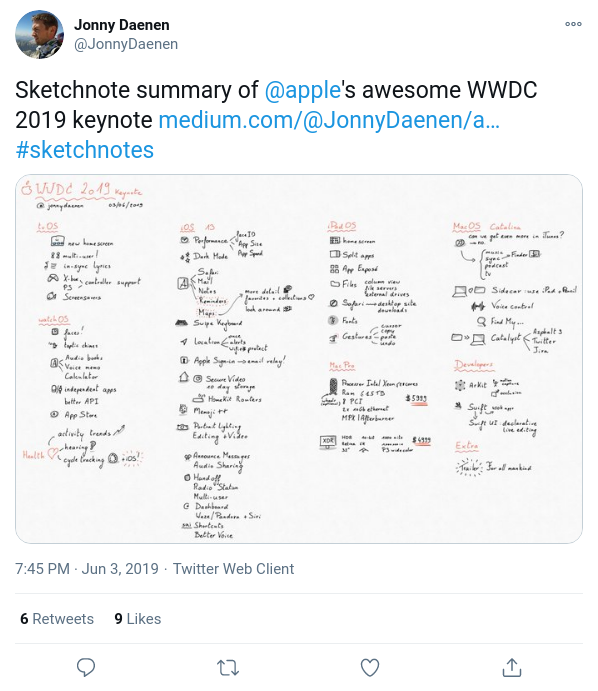 Jonny Daenen
@JonnyDaenen
Sketchnote summary of @apple's awesome WWDC
2019 keynote medium.com/@JonnyDaenen/a…
#sketchnotes
WWDC 2019 Keynote
@jonnydaenen 03/06/2019
tvOS
new homescreen
multi-user!
in-sync lyrics
X-box
PS
controller support
Screensavers
watchOS
faces!
haptic chimes
Audio books
Voice memo
Calculator
independent apps
better API
App Store
activity trends
hearing
Health
cycle tracking
iOS!
iOS 13
Performance
faceID
App Size
App Speed
Dark Mode
Safari
Mail
Notes
Reminders
Maps
more detail
favorites + collections
look around
Swipe Keyboard
Location
once
alerts
wifi protect
Apple Sign-in → email relay!
Secure Video
10 day storage
HomeKit Routers
Memoji ++
Portrait Lighting
Editing + Video
Announce Messages
Audio Sharing
Handoff
Radio Station
Multi-user
Dashboard
Waze/Pandora + Siri
Shortcuts
Better Voice
iPad OS
homescreen
Split apps
App Exposé
Files
column view
file servers
external drives
Safari → desktop site
downloads
Fonts
Gestures
cursor
copy
paste
undo
Mac Pro
Processor Intel Xeon
Ram 1.5TB
8 PCI
2x 10Gb ethernet
MPX | Afterburner
$5999
XDR
HDR
32"
P3 wide color
$4999
MacOS Catalina
can we get even more in iTunes?
→ no.
music
sync → Finder
podcast
tv
Sidecar: use iPad + Pencil
Voice control
Find My...
Catalyst
Asphalt 9
Twitter
Jira
Developers
ArKit
Swift
Swift UI declarative
live editing
Extra
Trailer: For all mankind
7:45 PM · Jun 3, 2019 · Twitter Web Client
6 Retweets 9 Likes